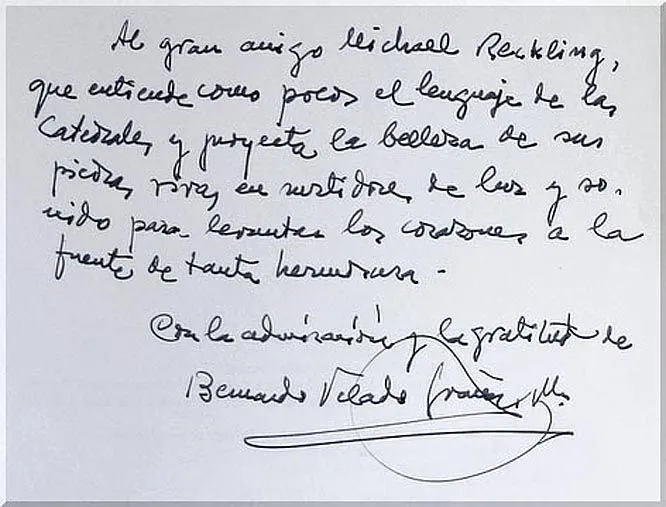 Al gran amigo Michael Reckling,
que entiende como pocos el lenguaje de las
Catedrales y proyecta la belleza de sus
piedras vivas en surtidores de luz y so-
nido para levantar los corazones a la
fuente de tanta hermosura.
Con la admiración y la gratitud de
Bernardo Velado Graña